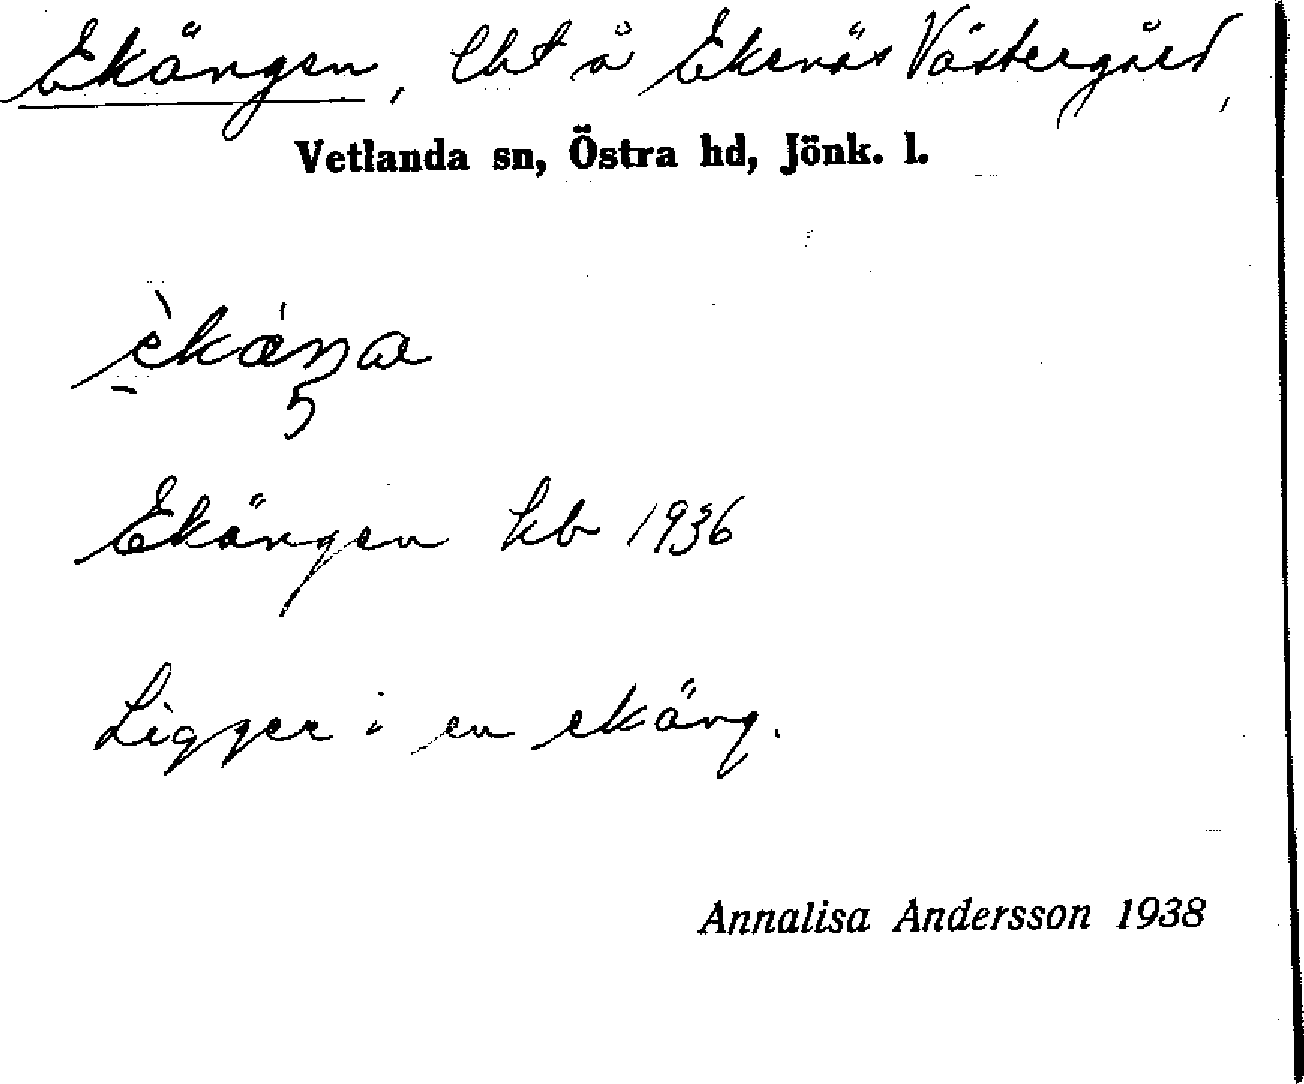 Ekängen, lht å Ekenäs Västergård,
Vetlanda sn, Östra hd, Jönk. l.
Ekängen kb 1936
Ligger i en ekäng.
Annalisa Andersson 1938